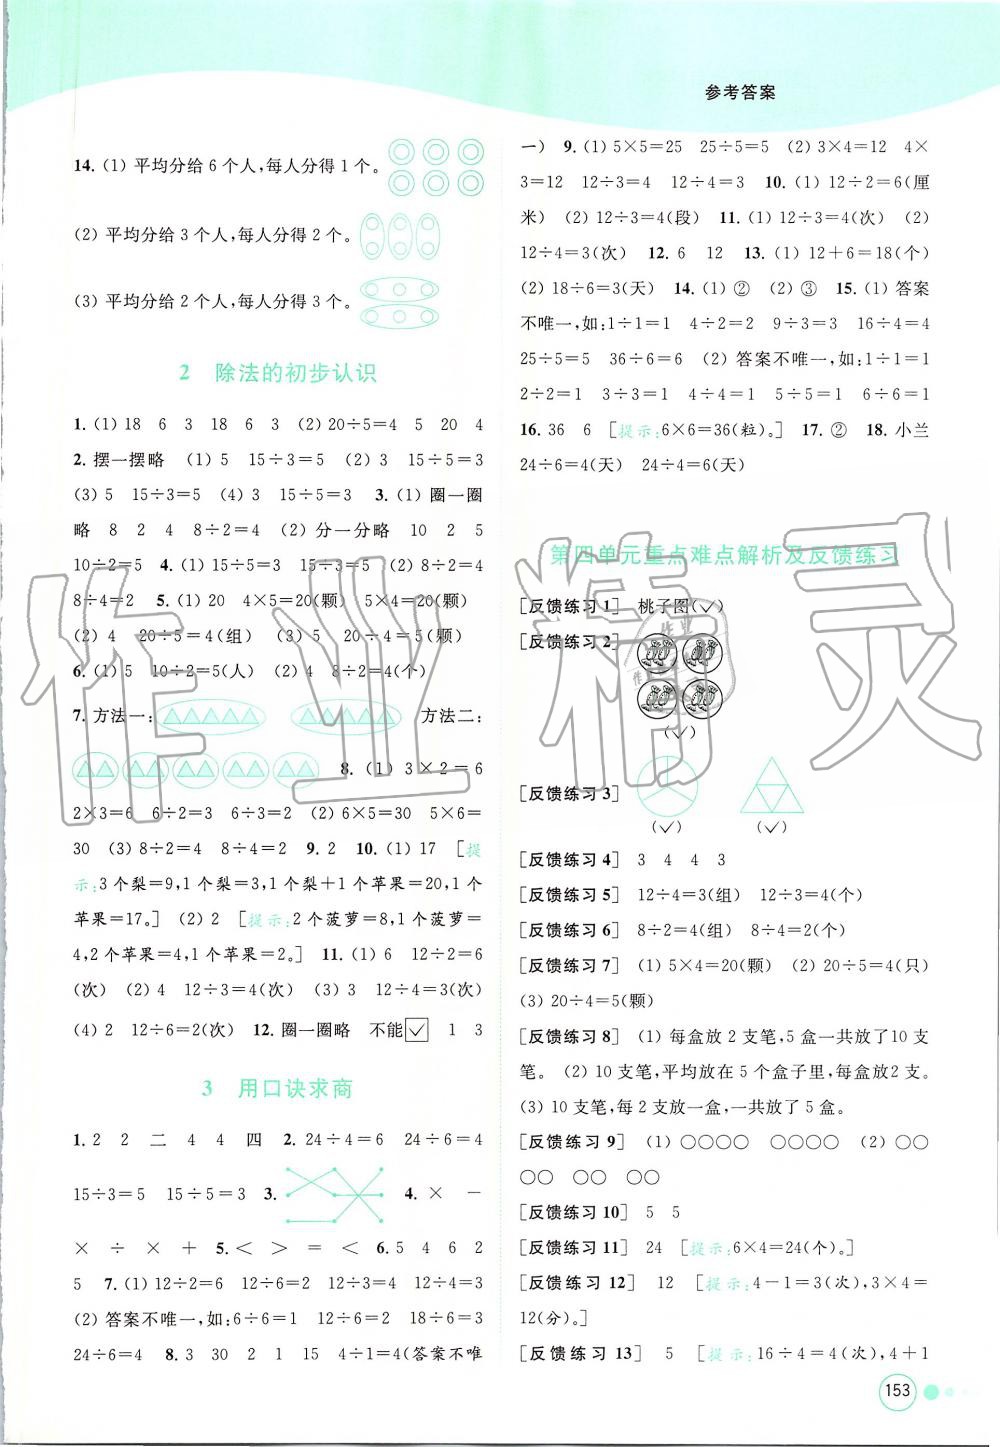 参考答案
14. (1) 平均分给 6 个人,每人分得 1 个。
(2) 平均分给 3 个人,每人分得 2 个。
(3) 平均分给 2 个人,每人分得 3 个。
2 除法的初步认识
1. (1) 18 6 3 18 6 3 (2) 20÷5=4 5 20 4
2. 摆一摆略 (1) 5 15÷3=5 (2) 3 15÷5=3
(3) 5 15÷3=5 (4) 3 15÷5=3 3. (1) 圈一圈
略 8 2 4 8÷2=4 (2) 分一分略 10 2 5
10÷2=5 4. (1) 10÷5=2 (2) 8÷2=4
8÷4=2 5. (1) 20 4×5=20(颗) 5×4=20(颗)
(2) 4 20÷5=4(组) (3) 5 20÷4=5(颗)
6. (1) 5 10÷2=5(人) (2) 4 8÷2=4(个)
7. 方法一: 方法二:
8. (1) 3×2=6
2×3=6 6÷2=3 6÷3=2 (2) 6×5=30 5×6=
30 (3) 8÷2=4 8÷4=2 9. 2 10. (1) 17 [提
示:3 个梨=9,1 个梨=3,1 个梨+1 个苹果=20,1 个
苹果=17。] (2) 2 [提示:2 个菠萝=8,1 个菠萝=
4,2 个苹果=4,1 个苹果=2。] 11. (1) 6 12÷2=6
(次) (2) 4 12÷3=4(次) (3) 3 12÷4=3(次)
(4) 2 12÷6=2(次) 12. 圈一圈略 不能✓ 1 3
3 用口诀求商
1. 2 2 二 4 4 四 2. 24÷4=6 24÷6=4
15÷3=5 15÷5=3 3. 4. × －
× ÷ × + 5. < > = < 6. 5 4 6 2
5 7. (1) 12÷2=6 12÷6=2 12÷3=4 12÷4=3
(2) 答案不唯一,如:6÷6=1 12÷6=2 18÷6=3
24÷6=4 8. 3 30 2 1 15 4÷1=4(答案不唯
一) 9. (1) 5×5=25 25÷5=5 (2) 3×4=12 4×
3=12 12÷3=4 12÷4=3 10. (1) 12÷2=6(厘
米) (2) 12÷3=4(段) 11. (1) 12÷3=4(次) (2)
12÷4=3(次) 12. 6 12 13. (1) 12+6=18(个)
(2) 18÷6=3(天) 14. (1) ② (2) ③ 15. (1) 答案
不唯一,如:1÷1=1 4÷2=2 9÷3=3 16÷4=4
25÷5=5 36÷6=6 (2) 答案不唯一,如:1÷1=1
2÷2=1 3÷3=1 4÷4=1 5÷5=1 6÷6=1
16. 36 6 [提示:6×6=36(粒)。] 17. ② 18. 小兰
24÷6=4(天) 24÷4=6(天)
第四单元重点难点解析及反馈练习
[反馈练习 1] 桃子图(✓)
[反馈练习 2]
(✓)
[反馈练习 3]
(✓) (✓)
[反馈练习 4] 3 4 4 3
[反馈练习 5] 12÷4=3(组) 12÷3=4(个)
[反馈练习 6] 8÷2=4(组) 8÷4=2(个)
[反馈练习 7] (1) 5×4=20(颗) (2) 20÷5=4(只)
(3) 20÷4=5(颗)
[反馈练习 8] (1) 每盒放 2 支笔,5 盒一共放了10 支
笔。 (2) 10 支笔,平均放在 5 个盒子里,每盒放2 支。
(3) 10 支笔,每 2 支放一盒,一共放了 5 盒。
[反馈练习 9] (1) ○○○○ ○○○○ (2) ○○
○○ ○○ ○○
[反馈练习 10] 5 5
[反馈练习 11] 24 [提示:6×4=24(个)。]
[反馈练习 12] 12 [提示:4－1=3(次),3×4=
12(分)。]
[反馈练习 13] 5 [提示:16÷4=4(次),4+1
153
作业精灵